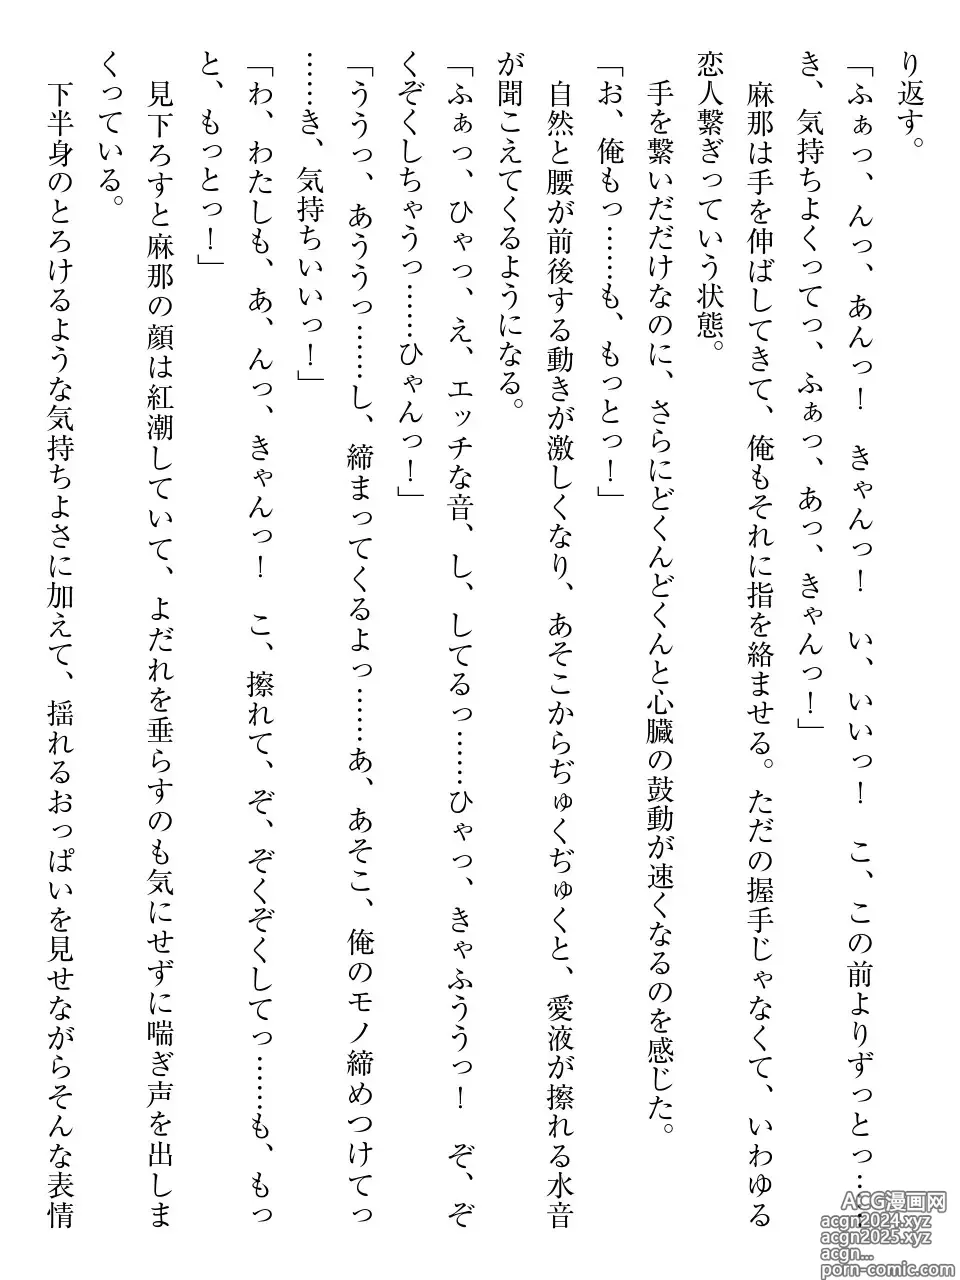 り返す。
「ふぁっ、んっ、あんっ！　きゃんっ！　い、いいっ！　こ、この前よりずっとっ……
き、気持ちよくってっ、ふぁっ、あっ、きゃんっ！」
麻那は手を伸ばしてきて、俺もそれに指を絡ませる。ただの握手じゃなくて、いわゆる
恋人繋ぎっていう状態。
手を繋いだだけなのに、さらにどくんどくんと心臓の鼓動が速くなるのを感じた。
「お、俺もっ……も、もっとっ！」
自然と腰が前後する動きが激しくなり、あそこからぢゅくぢゅくと、愛液が擦れる水音
が聞こえてくるようになる。
「ふぁっ、ひゃっ、え、エッチな音、し、してるっ……ひゃっ、きゃふううっ！　ぞ、ぞ
くぞくしちゃうっ……ひゃんっ！」
「ううっ、あううっ……し、締まってくるよっ……あ、あそこ、俺のモノ締めつけてっ
……き、気持ちいいっ！」
「わ、わたしも、あ、んっ、きゃんっ！　こ、擦れて、ぞ、ぞくぞくしてっ……も、もっ
と、もっとっ！」
見下ろすと麻那の顔は紅潮していて、よだれを垂らすのも気にせずに喘ぎ声を出しま
くっている。
下半身のとろけるような気持ちよさに加えて、揺れるおっぱいを見せながらそんな表情
ACG漫画网
acgn2024.xyz
acgn2025.xyz
acgn...
porn-comic.com